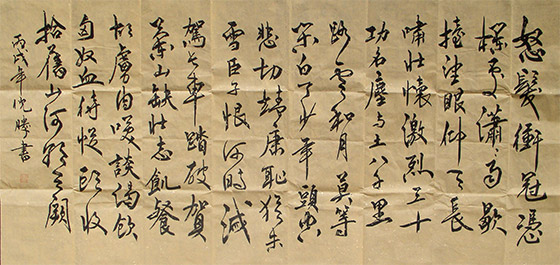 怒髮衝冠憑
欄處瀟雨歇
擡望眼仰天長
嘯壯懷激烈三十
功名塵與土八千里
路雲和月莫等
閒白了少年頭空
悲切靖康恥猶未
雪臣子恨何時滅
駕長車踏破賀
蘭山缺壯志飢餐
胡虜肉笑談渴飲
匈奴血待從頭收
拾舊山河朝天闕
丙戌年勝書